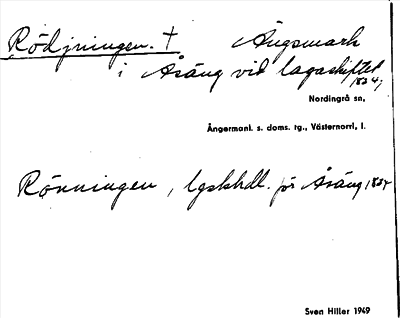 Rödjningen. † Ängsmark
i Åsäng vid lagaskiftet
1834;
Nordingrå sn,
Ångermanl. s. doms. tg., Västernorrl, l.
Rönningen, lgskhdl. för Åsäng, 1834
Sven Hiller 1949